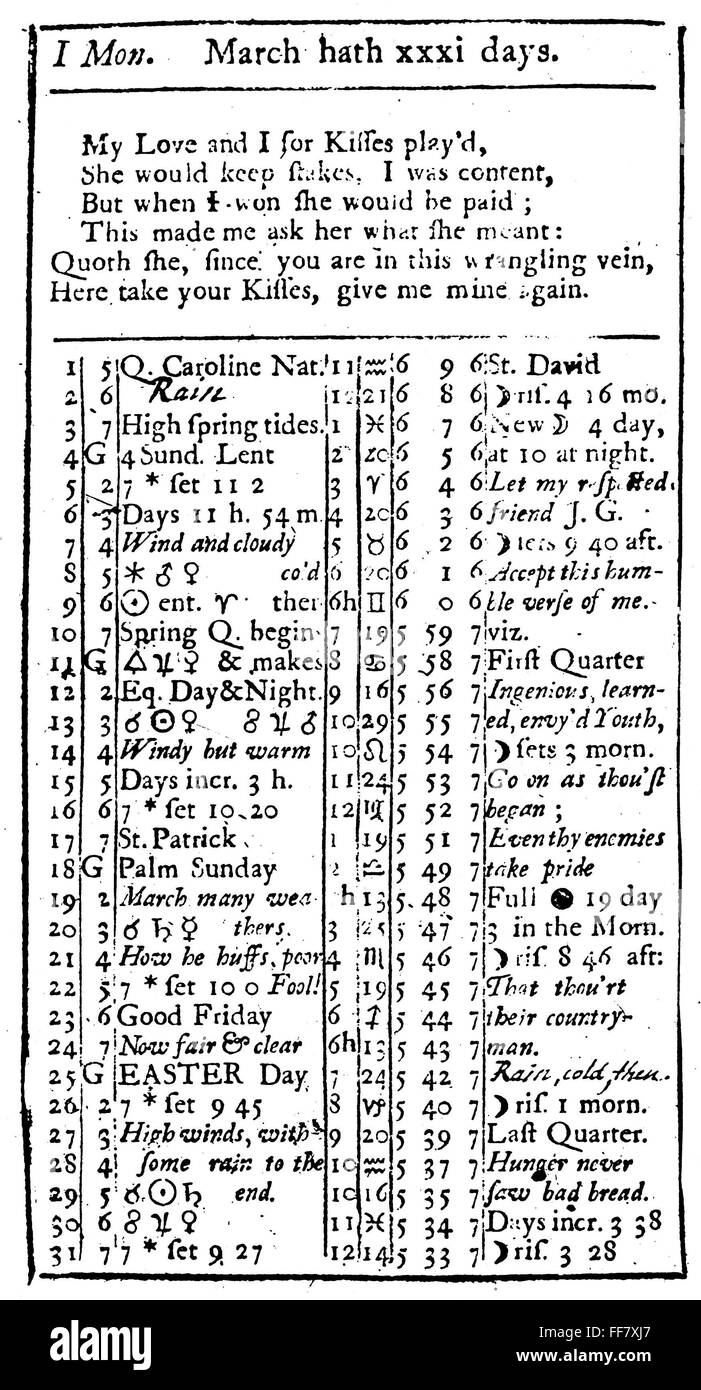 I Mon. March hath xxxi days.
My Love and I for Kiſſes play'd,
She would keep ſtakes, I was content,
But when I won ſhe would be paid ;
This made me ask her what ſhe meant:
Quoth ſhe, ſince you are in this wrangling vein,
Here take your Kiſſes, give me mine again.
1 5 Q. Caroline Nat. 11 ♒ 6 9 6 St. David
2 6 Rain 12 21 6 8 6 ☽ riſ. 4 16 mo.
3 7 High ſpring tides. 1 ♓ 6 7 6 New ☽ 4 day,
4 G 4 Sund. Lent 2 20 6 5 6 at 10 at night.
5 2 7 * ſet 11 2 3 ♈ 6 4 6 Let my reſpected
6 3 Days 11 h. 54 m. 4 20 6 3 6 friend J. G.
7 4 Wind and cloudy 5 ♉ 6 2 6 ☽ ſets 9 40 aft.
8 5 ⚹ ♂ ♀ co'd 6 20 6 1 6 Accept this hum-
9 6 ☉ ent. ♈ ther 6h ♊ 6 0 6 ble verſe of me.
10 7 Spring Q. begin 7 19 5 59 7 viz.
11 G △ ♃ ♀ & makes 8 ♋ 5 58 7 Firſt Quarter
12 2 Eq. Day&Night. 9 16 5 56 7 Ingenious, learn-
13 3 ☌ ☉ ♀ ☍ ♃ ♂ 10 29 5 55 7 ed, envy'd Youth,
14 4 Windy but warm 10 ♌ 5 54 7 ☽ ſets 3 morn.
15 5 Days incr. 3 h. 11 24 5 53 7 Go on as thou'ſt
16 6 7 * ſet 10 20 12 ♍ 5 52 7 began ;
17 7 St. Patrick 1 19 5 51 7 Even thy enemies
18 G Palm Sunday 2 ♎ 5 49 7 take pride
19 2 March many wea h 13 5 48 7 Full ● 19 day
20 3 ☌ ♄ ☿ thers. 3 25 5 47 7 3 in the Morn.
21 4 How he huffs, poor 4 ♏ 5 46 7 ☽ riſ. 8 46 aft:
22 5 7 * ſet 10 0 Fool! 5 19 5 45 7 That thou'rt
23 6 Good Friday 6 ♐ 5 44 7 their country-
24 7 Now fair & clear 6h 13 5 43 7 man.
25 G EASTER Day 7 24 5 42 7 Rain, cold, then
26 2 7 * ſet 9 45 8 ♑ 5 40 7 ☽ riſ. 1 morn.
27 3 High winds, with 9 20 5 39 7 Laſt Quarter.
28 4 ſome rain to the 10 ♒ 5 37 7 Hunger never
29 5 ☌ ☉ ♄ end. 10 16 5 35 7 ſaw bad bread.
30 6 ☍ ♃ ♀ 11 ♓ 5 34 7 Days incr. 3 38
31 7 7 * ſet 9 27 12 14 5 33 7 ☽ riſ. 3 28
alamy
Image ID: FF7XJ7
www.alamy.com